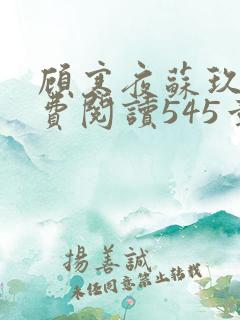 顧寒夜蘇玖
費閱讀545
揚善誠
未任同意禁止转载